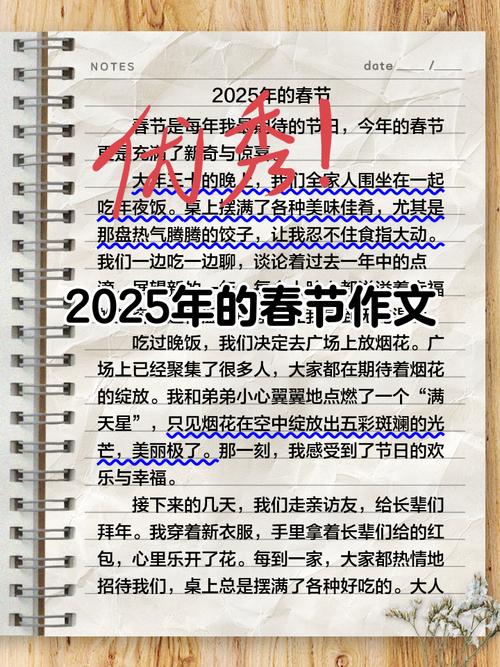 NOTES
date /
2025年的春节
优秀!
春节是每年我最期待的节日，今年的春节
更是充满了新奇与惊喜。
大年三十的晚上，我们全家人围坐在一起
吃年夜饭。桌上摆满了各种美味佳肴，尤其是
那盘热气腾腾的饺子，让我忍不住食指大动。
我们一边吃一边聊，谈论着过去一年中的点
2025年的春节作文
吃过晚饭，我们决定去广场上放烟花。广
场上已经聚集了很多人，大家都在期待着烟花
的绽放。我和弟弟小心翼翼地点燃了一个“满
天星”，只见烟花在空中绽放出五彩斑斓的光
芒，美丽极了。那一刻，我感受到了节日的欢
乐与幸福。
接下来的几天，我们走亲访友，给长辈们
拜年。我穿着新衣服，手里拿着长辈们给的红
包，心里乐开了花。每到一家，大家都热情地
招待我们，桌上总是摆满了各种好吃的。大人